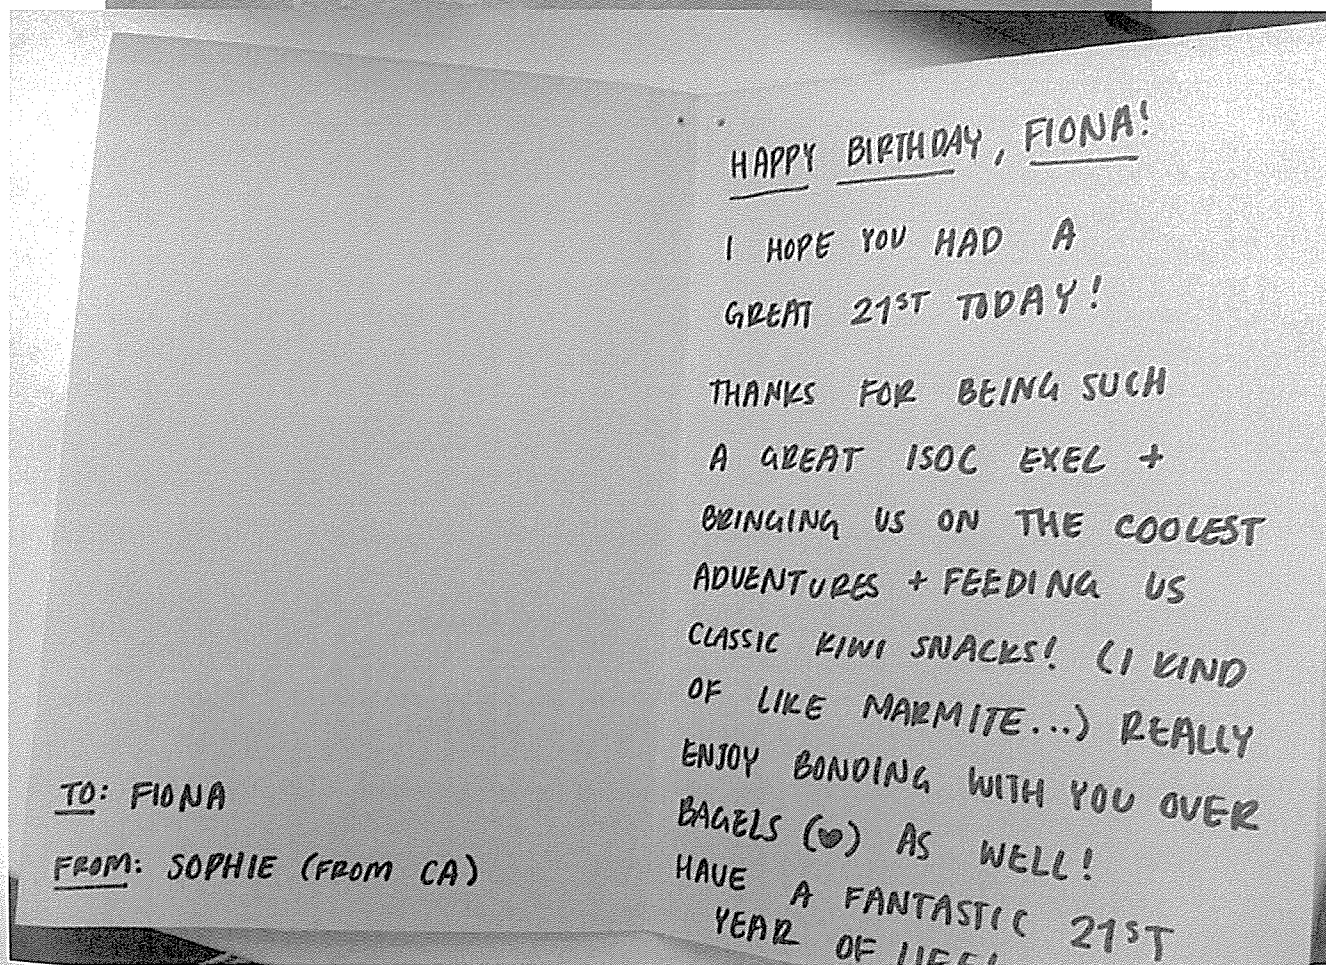 TO: FIONA
FROM: SOPHIE (FROM CA)
HAPPY BIRTHDAY, FIONA!
I HOPE YOU HAD A
GREAT 21ST TODAY!
THANKS FOR BEING SUCH
A GREAT ISOC EXEC +
BRINGING US ON THE COOLEST
ADVENTURES + FEEDING US
CLASSIC KIWI SNACKS! (I KIND
OF LIKE MARMITE...) REALLY
ENJOY BONDING WITH YOU OVER
BAGELS (♥) AS WELL!
HAVE A FANTASTIC 21ST
YEAR OF LIFE!